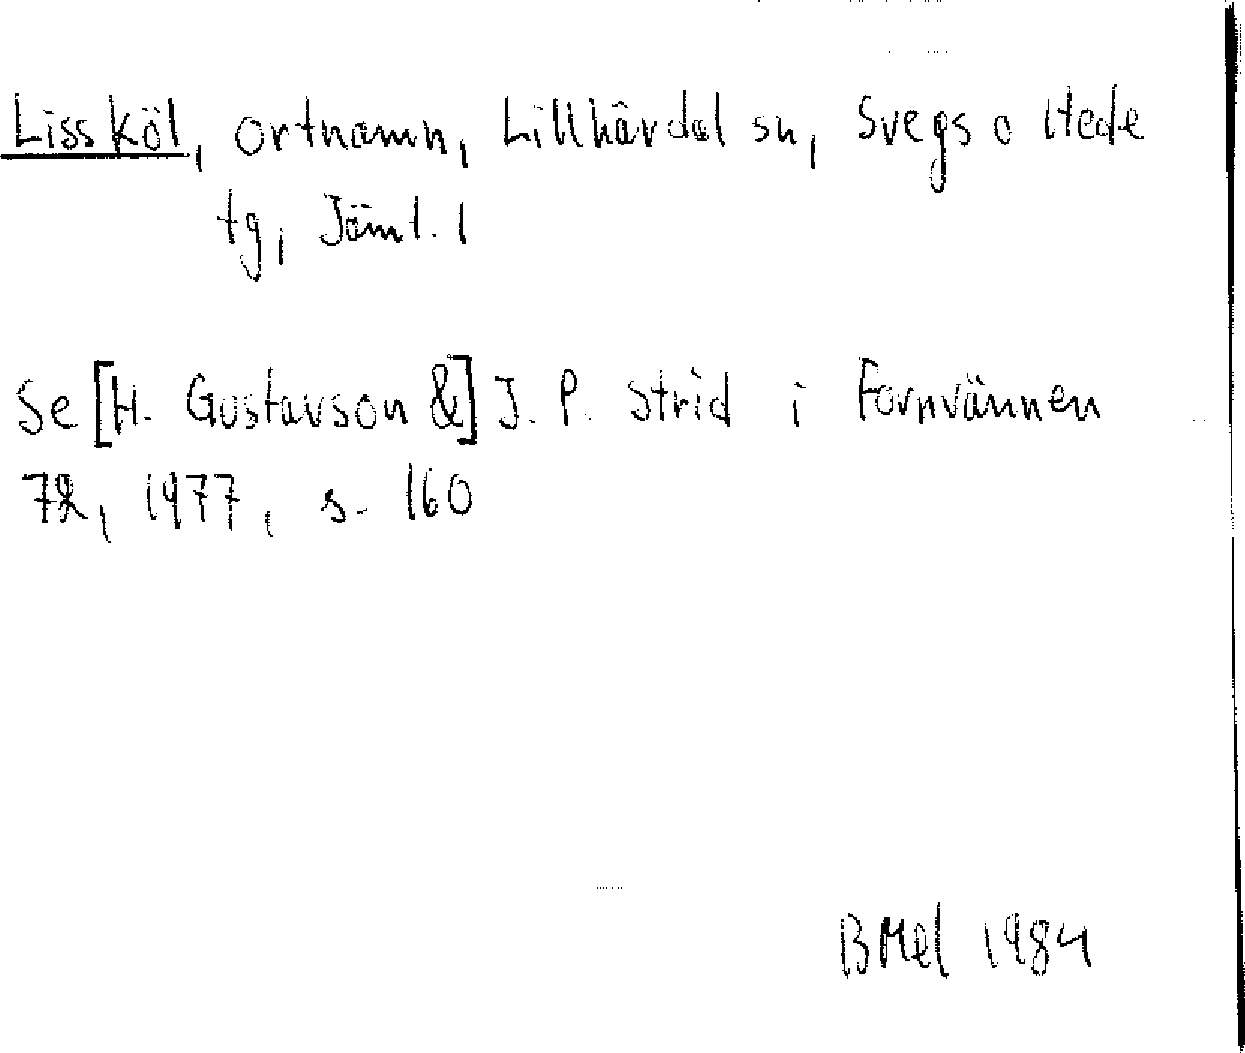 Lissköl, ortnamn, Lillhärdal sn, Svegs o Hede
tg, Jämtl. l
Se [H. Gustavson &] J. P. Strid i Fornvännen
72, 1977, s. 160
BMel 1984